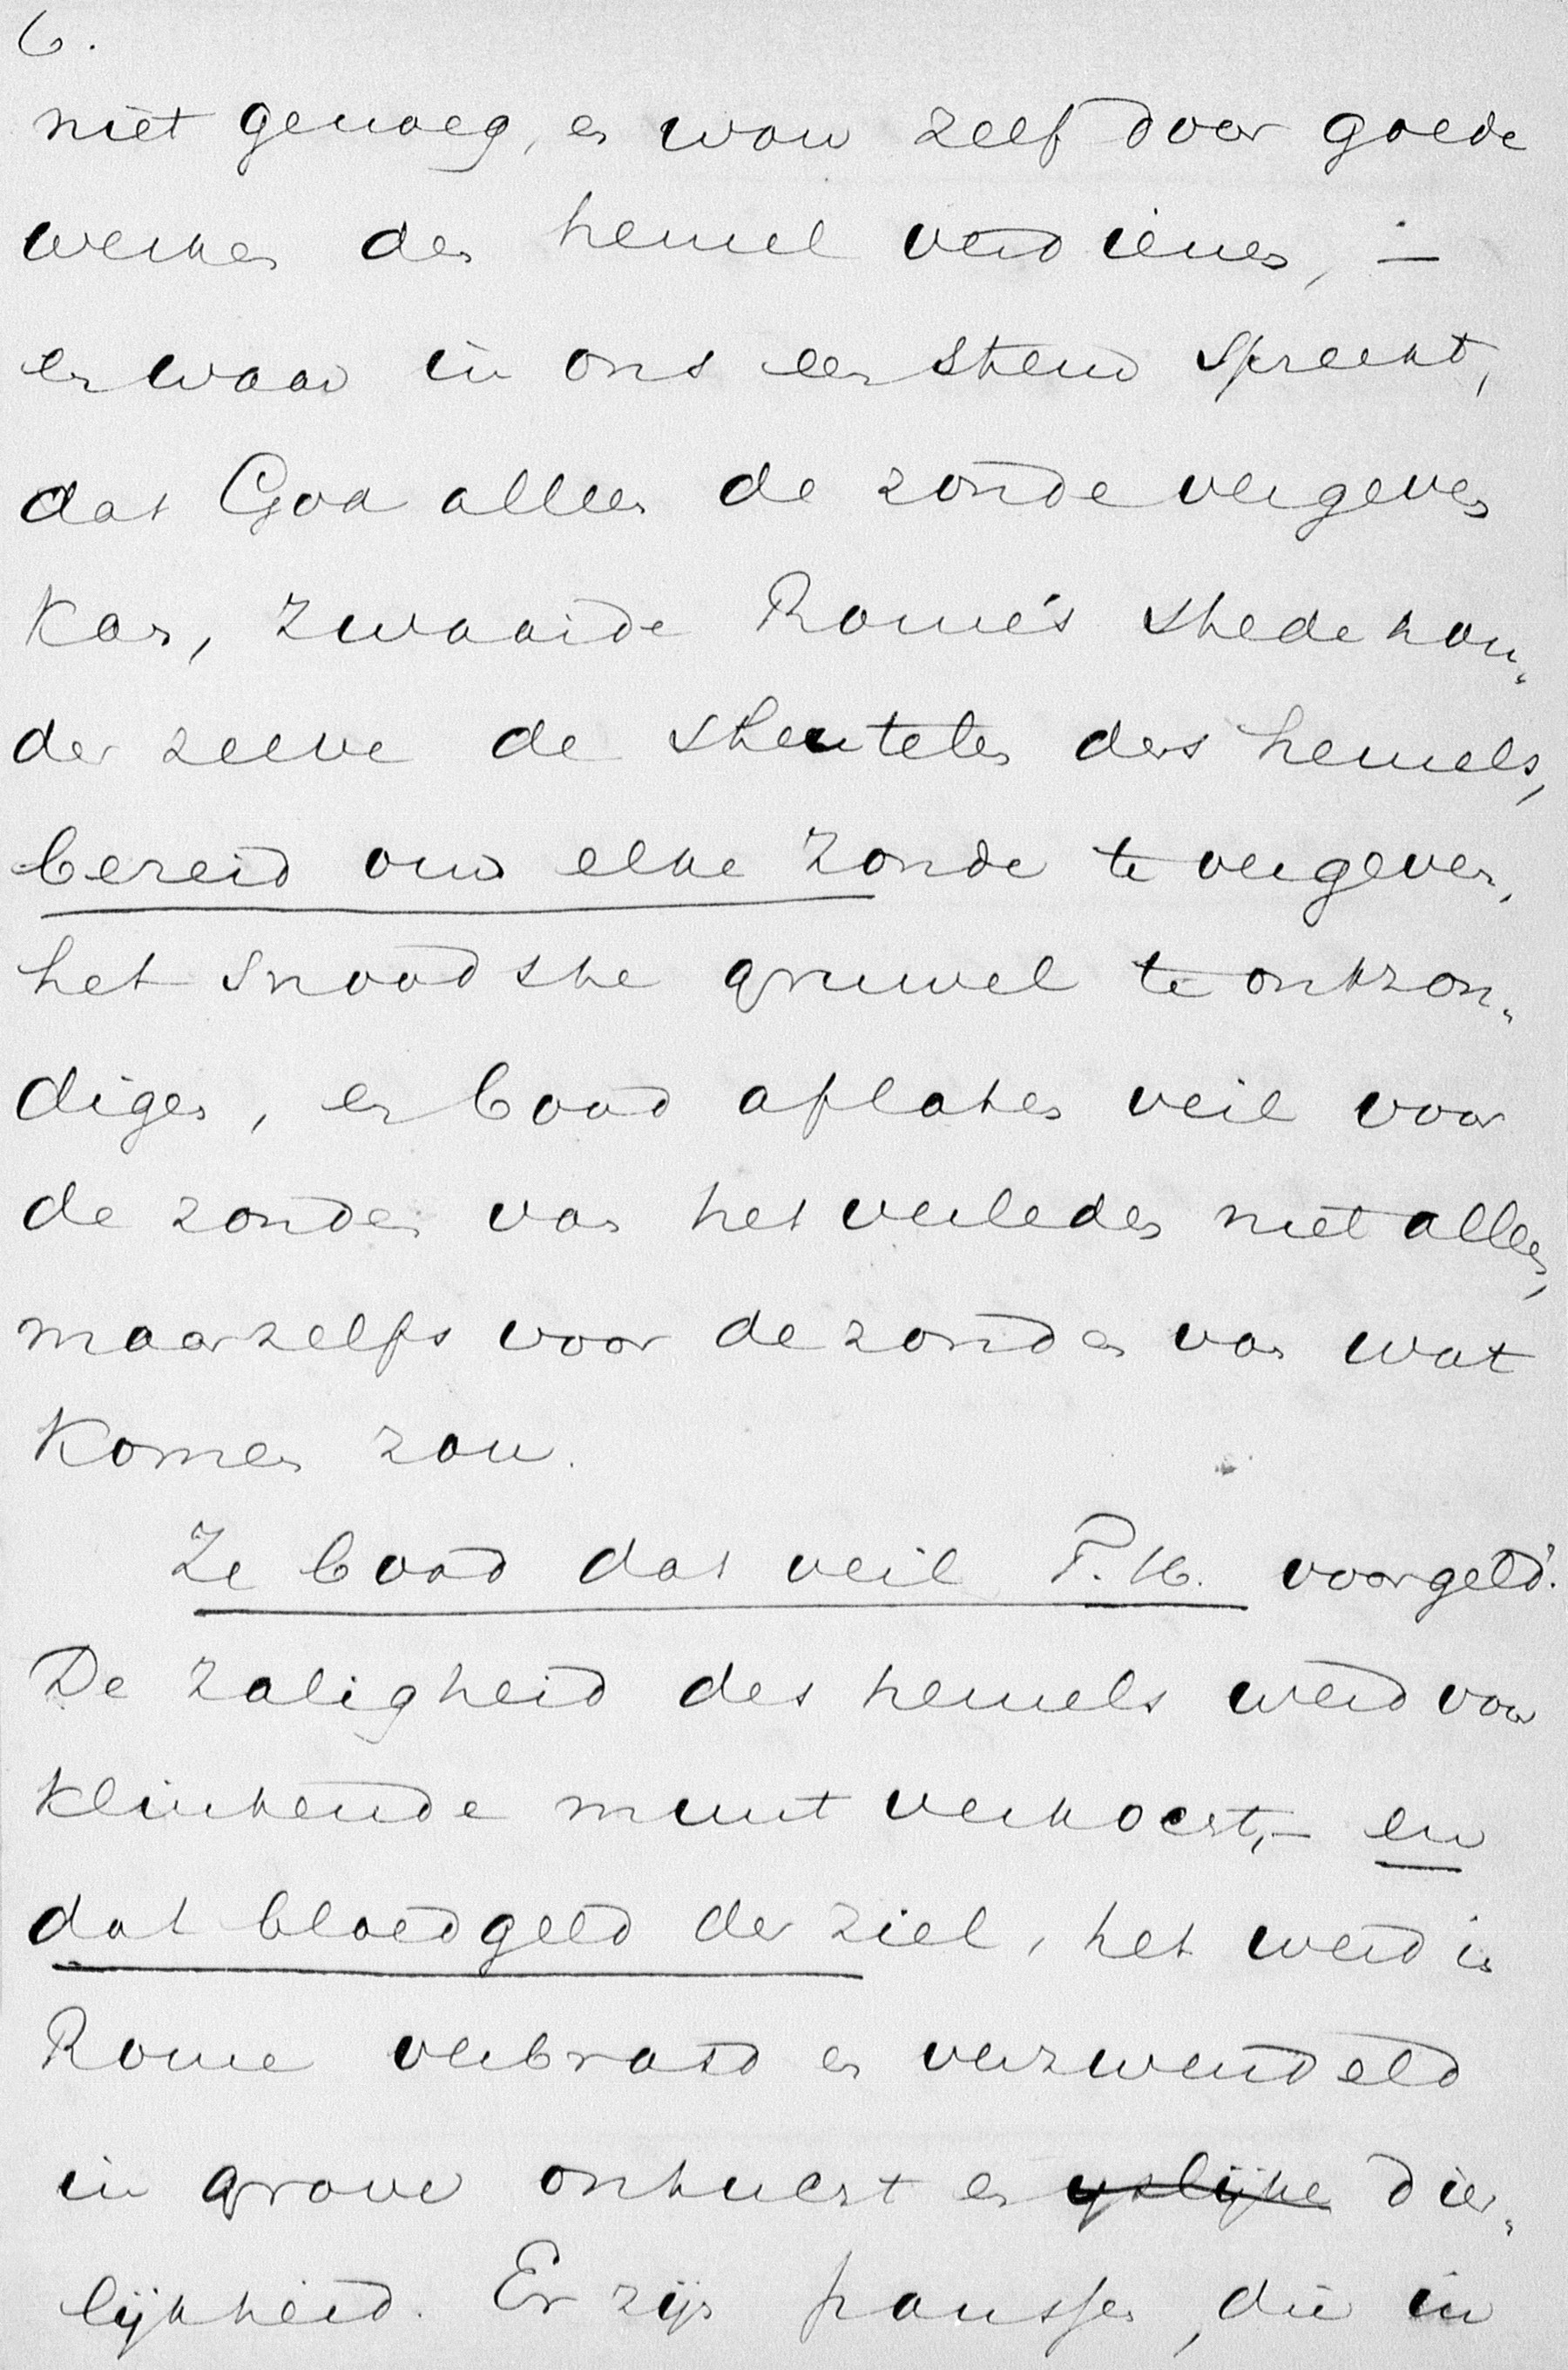 6.
niet genoeg, en wou zelf door goede
werken den hemel verdienen, —
en waar in ons een stem spreekt,
dat God alleen de zonde vergeven
kan, zwaaide Rome's stedehou-
der zelve de sleutelen des hemels,
bereid om elke zonde te vergeven,
het snoodste gruwel te ontzon-
digen, en bood aflaten veil voor
de zonden van het verleden niet alleen,
maar zelfs voor de zonden van wat
komen zou.
Ze bood dat veil T.H. voor geld!
De zaligheid des hemels werd voor
klinkende munt verkocht, — en
dat bloedgeld der ziel, het werd in
Rome verbrast en verzwendeld
in grove ontucht en yslijke dier-
lijkheid. Er zijn pausen, die in